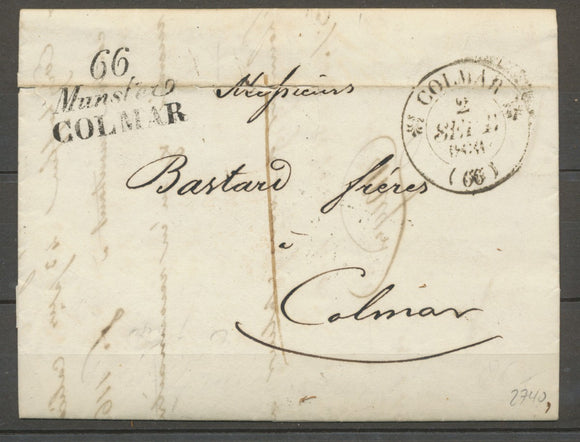 66
Munster
COLMAR
COLMAR
2
SEPT
(66)
Messieurs
Bastard frères
à
Colmar
2740,